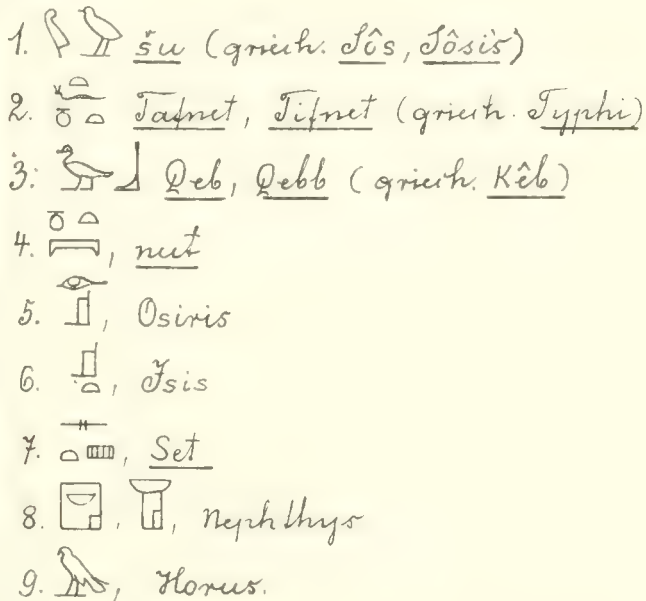 1. 𓆄𓅱 šu (griech. Sôs, Sôsis)
2. 𓏏𓆑𓏌𓏏 Tafnet, Tifnet (griech. Typhi)
3. 𓅬𓃀 Qeb, Qebb (griech. Kêb)
4. 𓏌𓏏𓇯, nut
5. 𓁹𓊨, Osiris
6. 𓊨𓏏, Isis
7. 𓊃𓏏𓈙, Set
8. 𓉠, Nephthys
9. 𓅃, Horus.